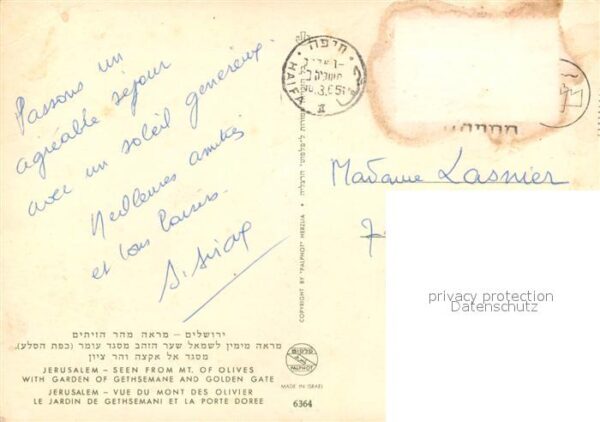 Passons un
agréable séjour
avec un soleil généreux.
Meilleures amitiés
et bons baisers.
חיפה
HAIFA
Madame Lasnier
7
privacy protection
Datenschutz
COPYRIGHT BY "PALPHOT" HERZLIA
ירושלים – מראה מהר הזיתים
מראה מימין לשמאל שער הזהב מסגד עומר (כפת הסלע),
מסגד אל אקצה והר ציון
JERUSALEM – SEEN FROM MT. OF OLIVES
WITH GARDEN OF GETHSEMANE AND GOLDEN GATE
JERUSALEM – VUE DU MONT DES OLIVIER
LE JARDIN DE GETHSEMANI ET LA PORTE DOREE
פלפוט
PALPHOT
MADE IN ISRAEL
6364